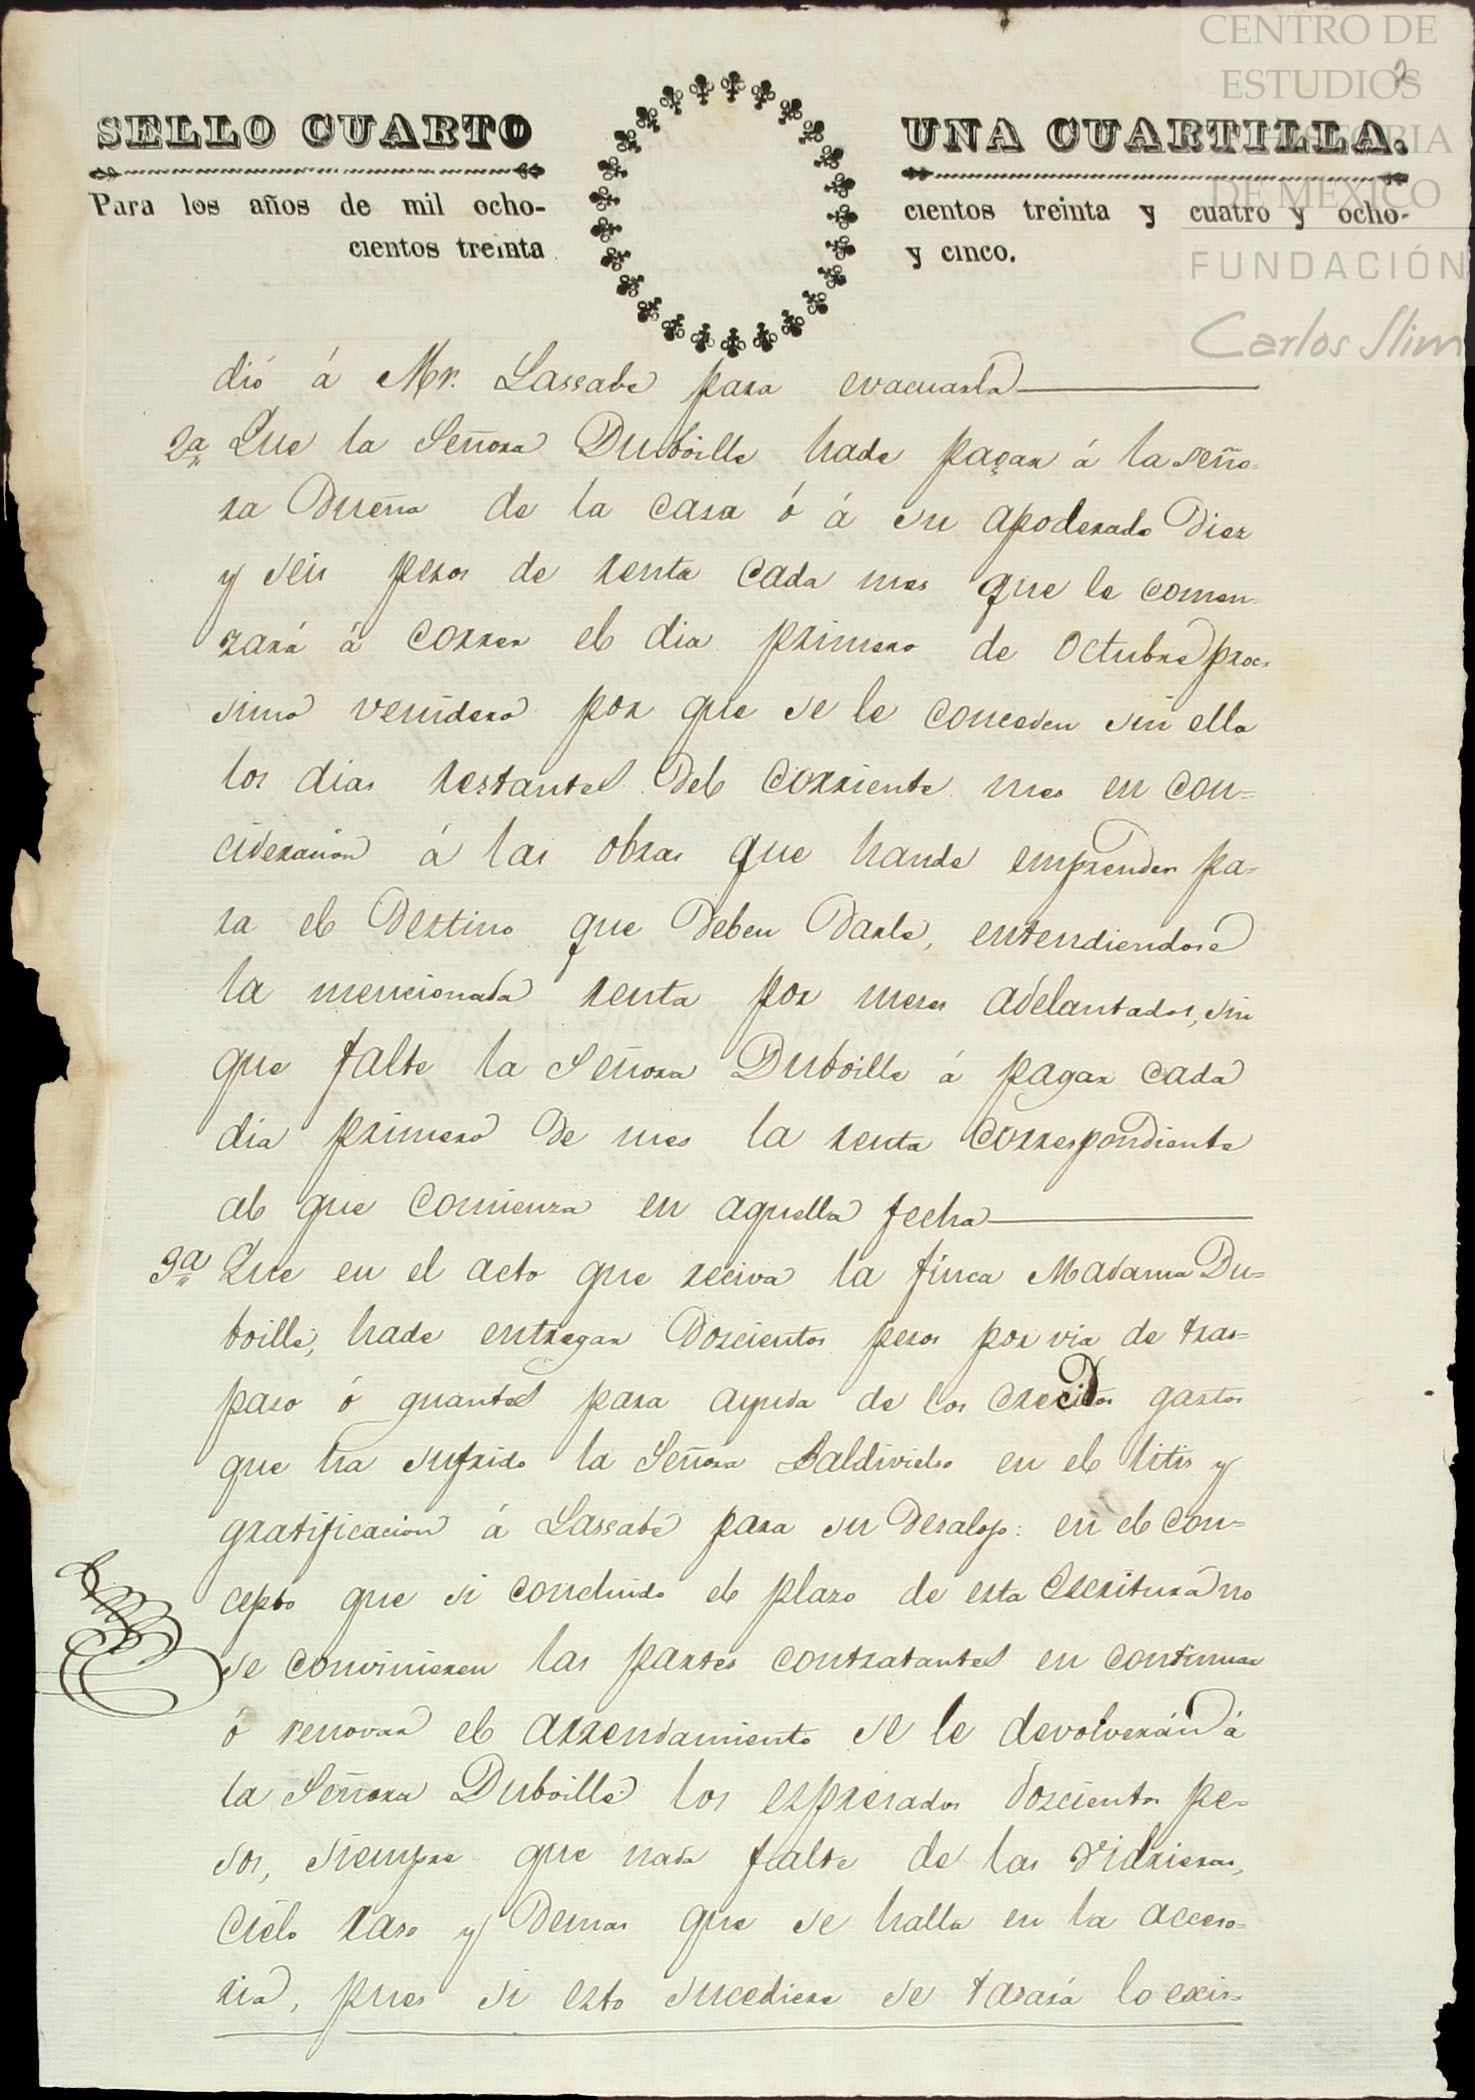 CENTRO DE
ESTUDIOS
DE HISTORIA
DE MEXICO
FUNDACIÓN
Carlos Slim
2
SELLO CUARTO UNA CUARTILLA.
Para los años de mil ocho- cientos treinta y cuatro y ocho-
cientos treinta y cinco.
dió á Mr. Lassabe para evacuarla
2a Que la Señora Duboille hade pagar á la seño-
ra Dueña de la casa ó á su apoderado Diez
y seis pesos de renta cada mes que le comen-
zará á correr el dia primero de Octubre proc-
simo venidero por que se le conceden sin ella
los dias restantes del corriente mes en con=
cideracion á las obras que hande emprender pa-
ra el Destino que deben darle, entendiendose
la mencionada renta por meses adelantados, sin
que falte la Señora Duboille á pagar cada
dia primero de mes la renta correspondiente
al que comienza en aquella fecha
3a Que en el acto que reciva la finca Madama Du=
boille, hade entregar Doscientos pesos por via de tras=
paso ó guantes para ayuda de los crecidos gastos
que ha sufrido la Señora Baldivielso en el litis y
gratificacion á Lassabe para su desalojo: en el con=
cepto que si concluido el plazo de esta Escritura no
se convinieren las partes contratantes en continuar
ó renovar el arrendamiento se le devolverán á
la Señora Duboille los espresados doscientos pe-
sos, siempre que nada falte de las vidrieras,
cielo raso y demas que se halla en la acceso-
ria, pues si esto sucediere se tasará lo exis-